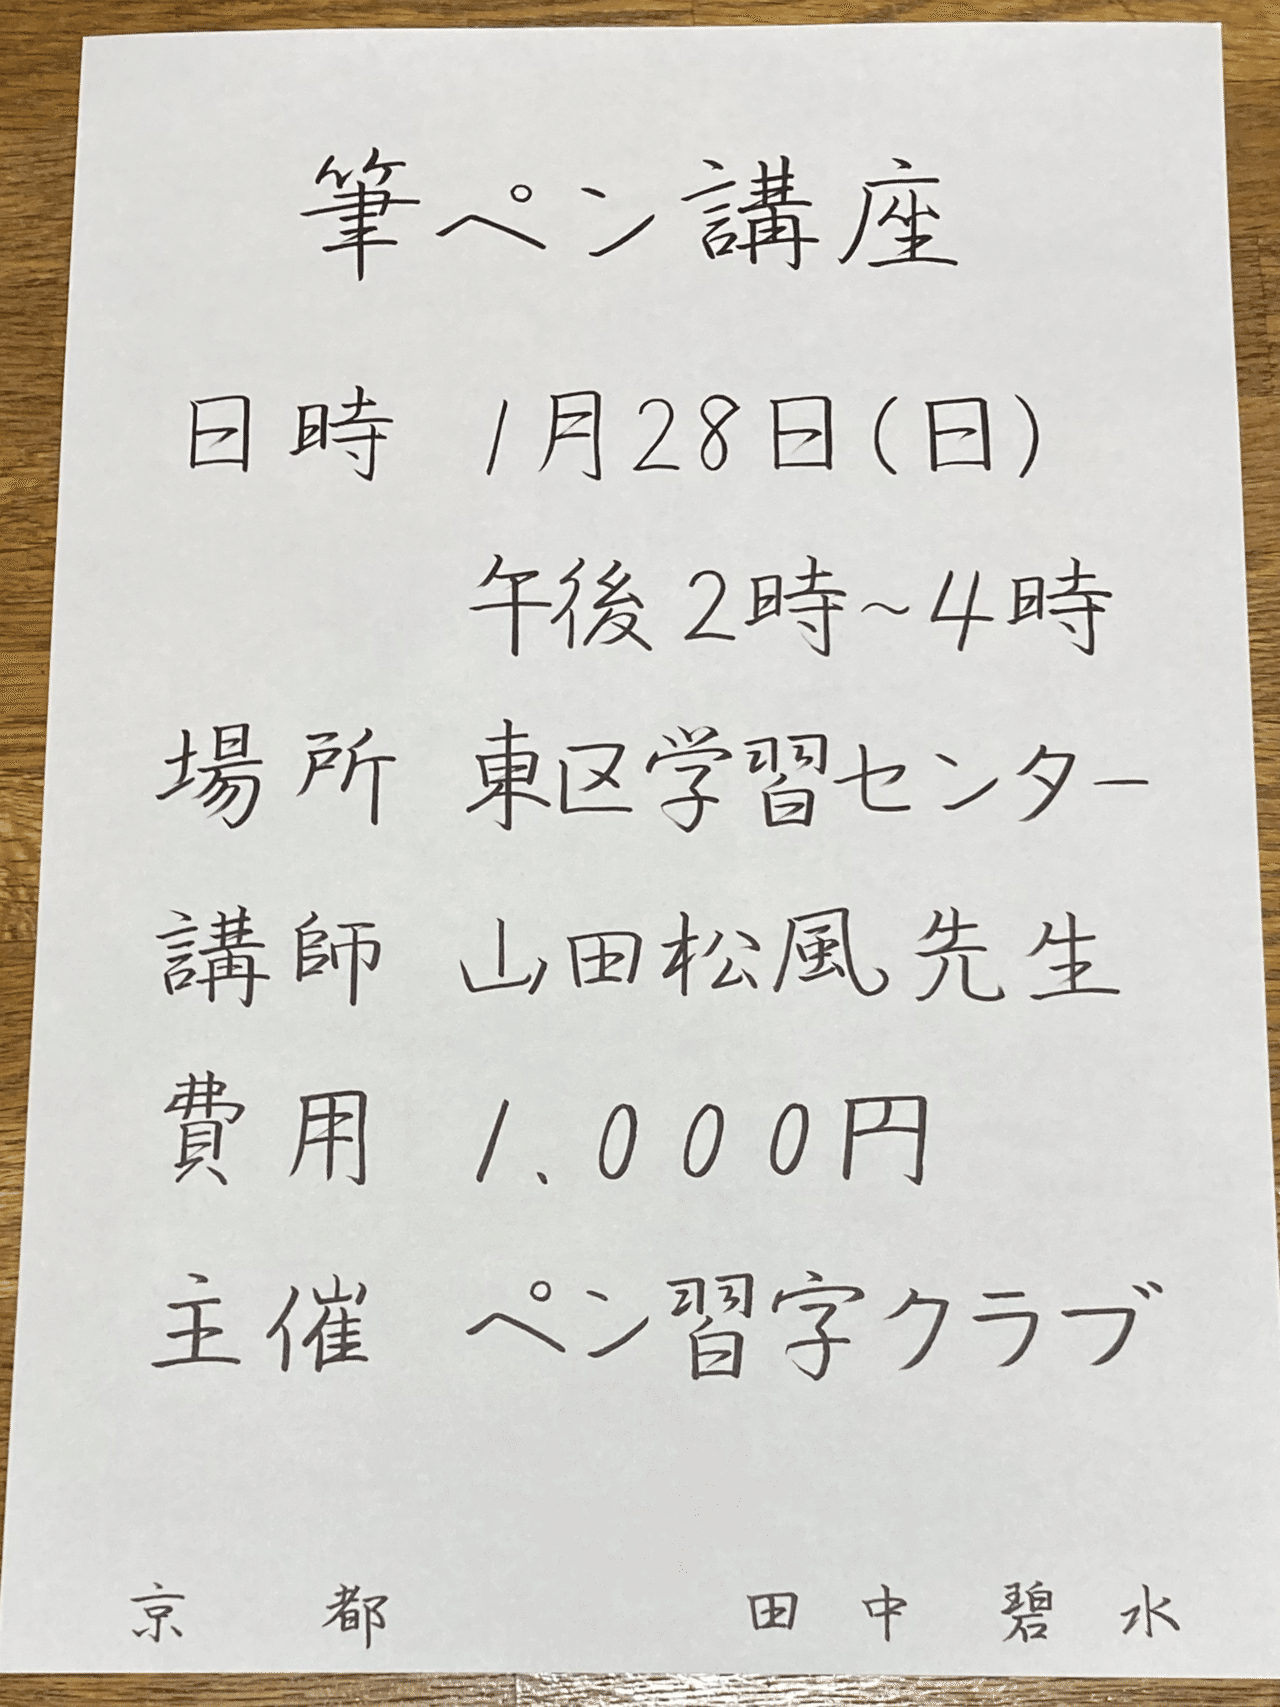 筆ペン講座
日時 1月28日(日)
午後2時~4時
場所 東区学習センター
講師 山田松風先生
費用 1,000円
主催 ペン習字クラブ
京都 田中碧水